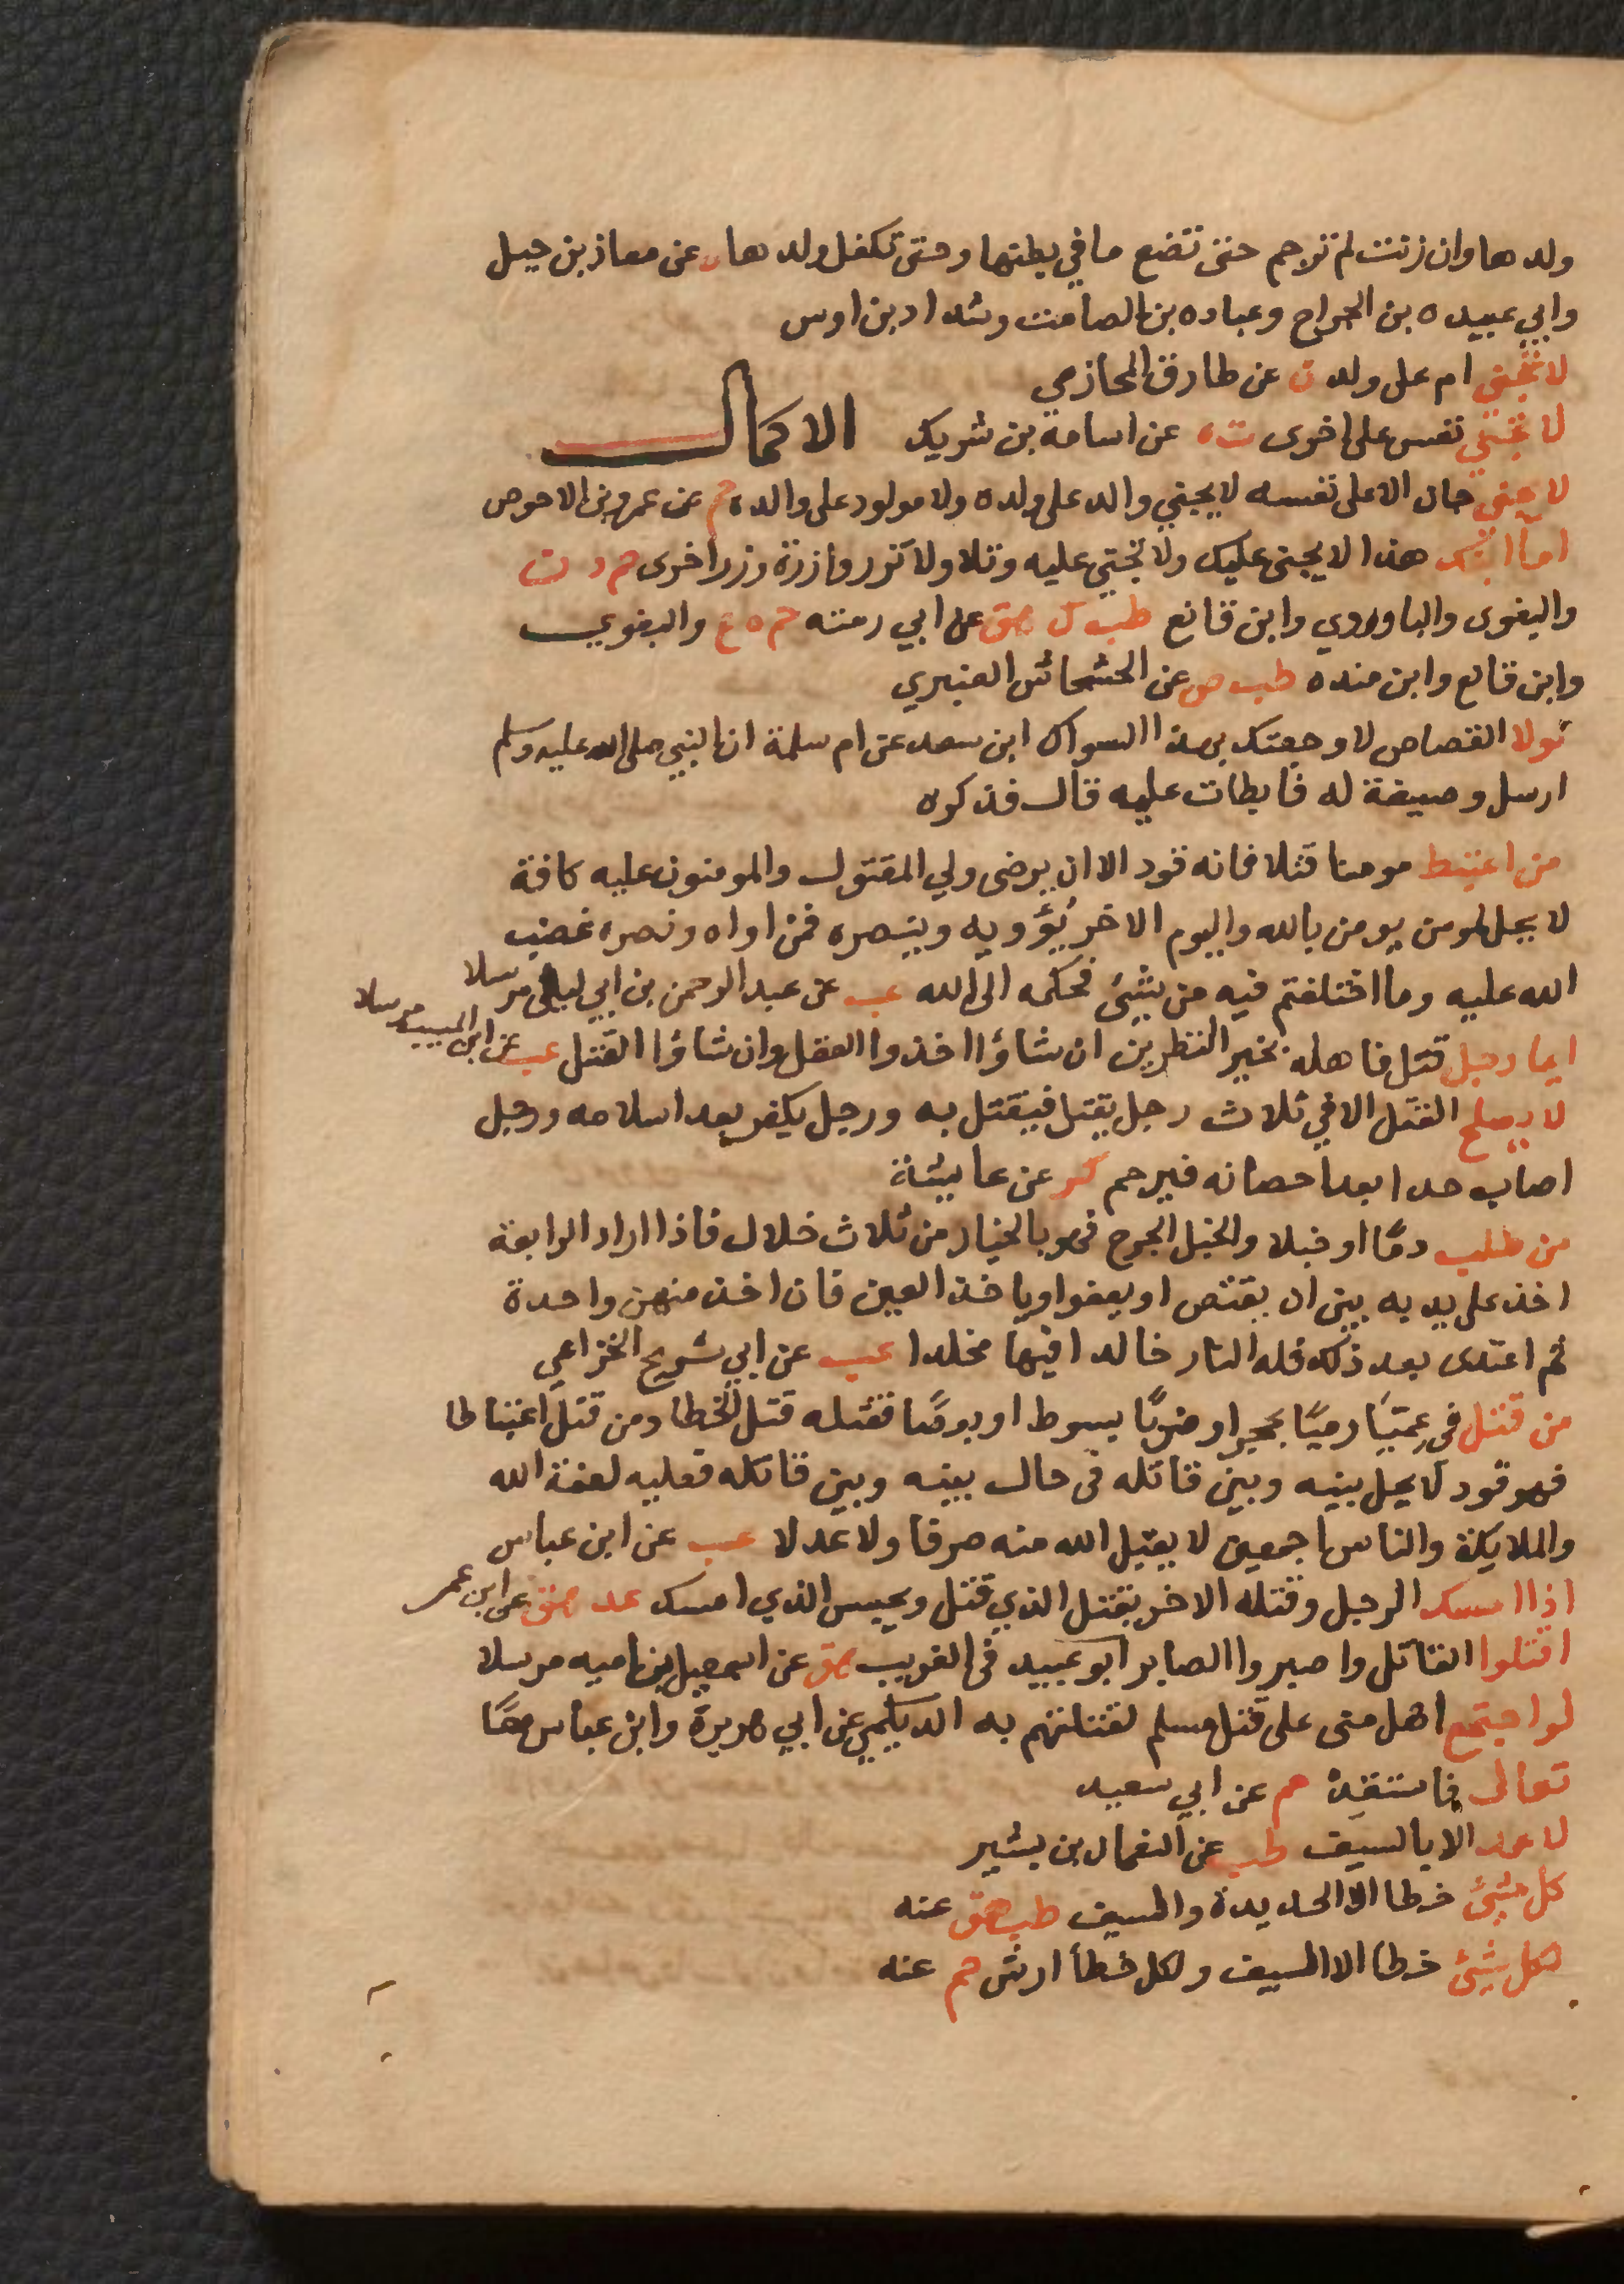 ولدها وان زنت لم ترجم حتى تضع ما في بطنها وحتى تكفل ولدها ه عن معاذ بن جبل
وابي عبيده بن الجراح وعباده بن الصامت وشداد بن اوس
لا تجني ام على ولد ن عن طارق المحازمي
لا تجني نفس على اخرى ت ه عن اسامة بن شريك الاكمال
لا يجني جان الا على نفسه لا يجني والد على ولده ولا مولود على والده حم عن عمرو بن الاحوص
اما ابنك هذا لا يجني عليك ولا تجني عليه وتلا ولا تزر وازرة وزر اخرى حم د ت
والبغوى والباوردي وابن قانع طب ك هق عن ابي رمثه حم ه ع والبغوي
وابن قانع وابن منده طب ص عن الخشخاش العنبري
لولا القصاص لاوجعتك بهذا السواك ابن سعد عن ام سلمة ان النبي صلى الله عليه وسلم
ارسل وصيفة له فابطات عليه قال فذكره
من اعتبط مومنا قتلا فانه قود الا ان يرضى ولي المقتول والمومنون عليه كافة
لا يحل لمومن يومن بالله واليوم الاخر يُؤويه وينصره فمن اواه ونصره غضب
الله عليه وما اختلفتم فيه من شئ فحكمه الى الله عب عن عبد الرحمن بن ابي ليلى مرسلا
ايما رجل قتل فاهله بخير النظرين ان شاؤا اخذوا العقل وان شاؤا القتل عب عن ابن المسيب مرسلا
لا يصلح القتل الا في ثلاث رجل يقتل فيقتل به ورجل يكفر بعد اسلامه ورجل
اصاب حدا بعد احصانه فيرجم كر عن عايشة
من طلب دمًا او خبلا والخبل الجرح فهو بالخيار من ثلاث خلال فاذا اراد الرابعة
اخذ على يديه بين ان يقتص او يعفو او ياخذ العين فان اخذ منهن واحدة
ثم اعتدى بعد ذلك فله النار خالدا فيها مخلدا عب عن ابي شريح الخزاعي
من قتل في عِمّيّا رميًا بحجر او ضربًا بسوط او بعصًا فقتله قتل الخطا ومن قتل اغتباطا
فهو قود لا يحل بينه وبين قاتله فى حال بينه وبين قاتله فعليه لعنة الله
والملايكة والناس اجمعين لا يقبل الله منه صرفا ولا عدلا عب عن ابن عباس
اذا امسك الرجل وقتله الاخر يقتل الذي قتل ويحبس الذي امسك عد هق عن ابن عمر
اقتلوا القاتل واصبروا الصابر ابو عبيد فى الغريب هق عن اسمعيل بن اميه مرسلا
لو اجتمع اهل منى على قتل مسلم لقتلتهم به الديلمي عن ابي هريرة وابن عباس معًا
تعالى فاستقِد حم عن ابي سعيد
لا عمد الا بالسيف طب عن النعمان بن بشير
كل شئ خطا الا الحديدة والسيف طب هق عنه
لكل شئ خطا الا السيف ولكل خطأ ارش حم عنه